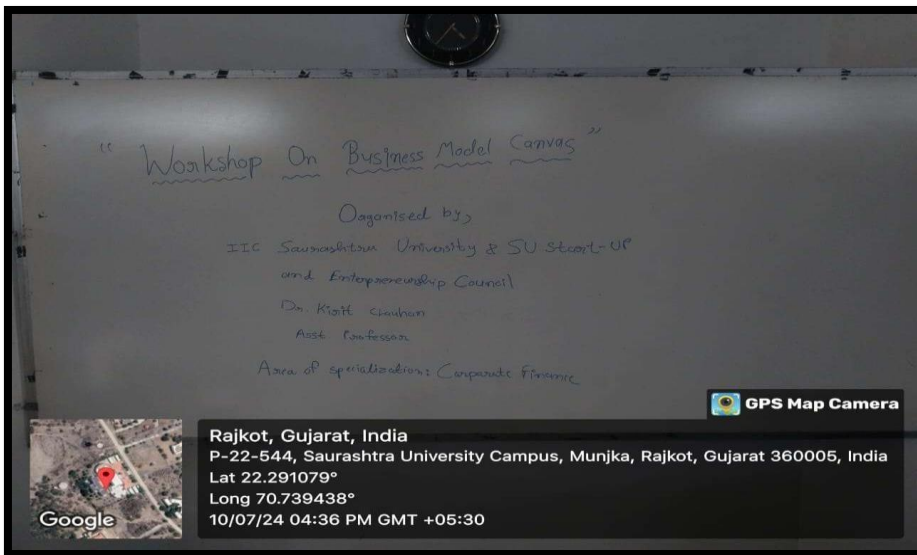 "Workshop On Business Model Canvas"
Organised by,
IIC Saurashtra University & SU Start-UP
and Enterpreneurship Council
Dr. Kirit Chauhan
Asst Professor
Area of specialization: Corporate Finance
GPS Map Camera
Rajkot, Gujarat, India
P-22-544, Saurashtra University Campus, Munjka, Rajkot, Gujarat 360005, India
Lat 22.291079°
Long 70.739438°
10/07/24 04:36 PM GMT +05:30
Google